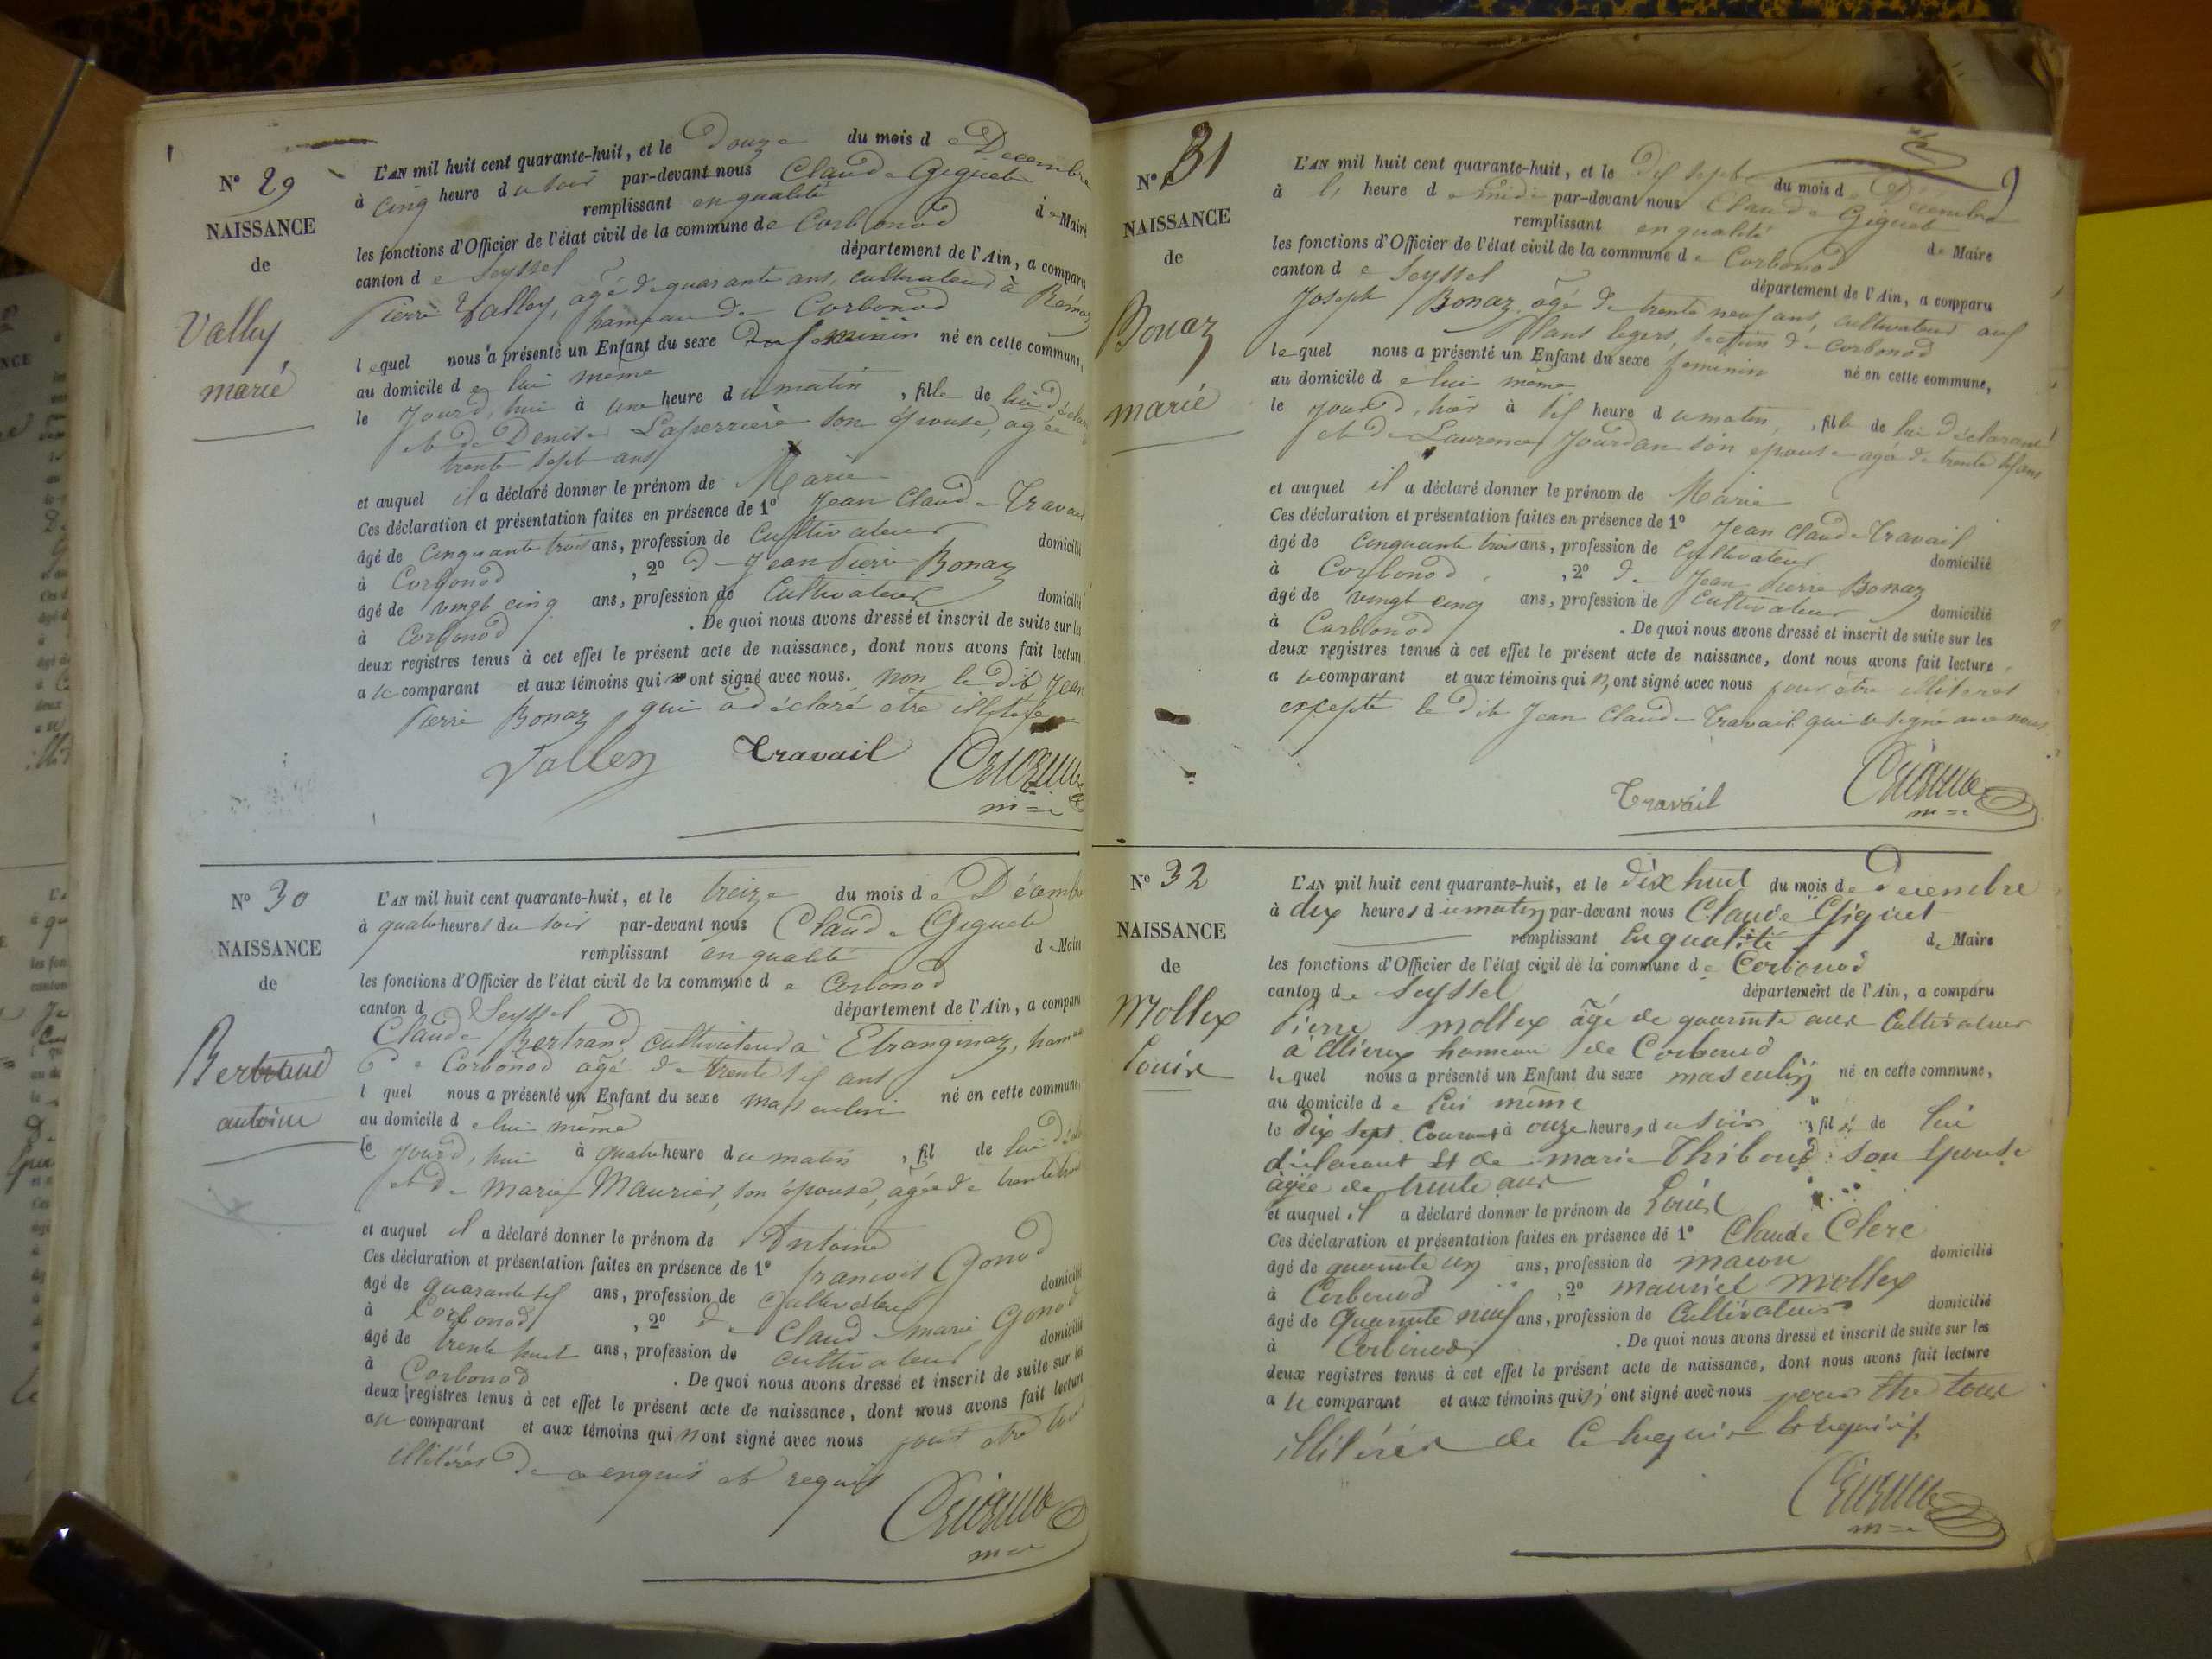 Nº 29
NAISSANCE
de
Valley
marié
L'AN mil huit cent quarante-huit, et le Douze du mois de Decembre
à cinq heure du soir par-devant nous Claude Giguet
remplissant en qualité de Maire
les fonctions d'Officier de l'état civil de la commune de Corbonod
canton de Seyssel département de l'Ain, a comparu
Pierre Valley, âgé de quarante ans, cultivateur à
hameau de Corbonod
lequel nous a présenté un Enfant du sexe feminin né en cette commune,
au domicile de lui même
le Jourd'hui à une heure du matin, fille de lui
et de Denise Laperrière son épouse, agée
trente sept ans
et auquel il a déclaré donner le prénom de Marie
Ces déclaration et présentation faites en présence de 1º Jean Claude Travail
âgé de Cinquante trois ans, profession de Cultivateur domicilié
à Corbonod, 2º de Jean Pierre Bonaz
âgé de vingt cinq ans, profession de Cultivateur domicilié
à Corbonod. De quoi nous avons dressé et inscrit de suite sur les
deux registres tenus à cet effet le présent acte de naissance, dont nous avons fait lecture
a le comparant et aux témoins qui ont signé avec nous. non le dit Jean
Pierre Bonaz qui a déclaré etre
Valley Travail
Nº 30
NAISSANCE
de
Bertrand
antoine
L'AN mil huit cent quarante-huit, et le treize du mois de Décembre
à quatre heures du soir par-devant nous Claude Giguet
remplissant en qualité de Maire
les fonctions d'Officier de l'état civil de la commune de Corbonod
canton d Seyssel département de l'Ain, a comparu
Claude Bertrand cultivateur à Etranginaz, hameau
de Corbonod âgé de trente six ans
l quel nous a présenté un Enfant du sexe masculin né en cette commune,
au domicile de lui même
le Jourd'hui à quatre heure du matin, fil de lui
et de Marie Maurier, son épouse, agée de trente
et auquel il a déclaré donner le prénom de Antoine
Ces déclaration et présentation faites en présence de 1º francois Gonod
âgé de quarante six ans, profession de Cultivateur domicilié
à Corbonod, 2º de Claude marie Gonod
âgé de trente huit ans, profession de cultivateur domicilié
à Corbonod. De quoi nous avons dressé et inscrit de suite sur les
deux registres tenus à cet effet le présent acte de naissance, dont nous avons fait lecture
au comparant et aux témoins qui n'ont signé avec nous pour etre
illitérés de ce enquis et requis
Nº 31
NAISSANCE
de
Bonaz
marié
L'AN mil huit cent quarante-huit, et le dix sept du mois de Décembre
à heure de midi par-devant nous Claude Giguet
remplissant en qualité de Maire
les fonctions d'Officier de l'état civil de la commune de Corbonod
canton de Seyssel département de l'Ain, a comparu
Joseph Bonaz âgé de trente neuf ans, cultivateur aux
section de Corbonod
lequel nous a présenté un Enfant du sexe feminin né en cette commune,
au domicile de lui même
le Jourd'hui à six heure du matin, fille de lui déclarant
et de Laurence Jourdan son epouse agée de trente six ans
et auquel il a déclaré donner le prénom de Marie
Ces déclaration et présentation faites en présence de 1º Jean Claude Travail
âgé de Cinquante trois ans, profession de Cultivateur domicilié
à Corbonod, 2º de Jean Pierre Bonaz
âgé de vingt cinq ans, profession de Cultivateur domicilié
à Corbonod. De quoi nous avons dressé et inscrit de suite sur les
deux registres tenus à cet effet le présent acte de naissance, dont nous avons fait lecture
a le comparant et aux témoins qui n'ont signé avec nous pour être illiteres
excepté le dit Jean Claude Travail qui a signé avec nous
Travail
Nº 32
NAISSANCE
de
Mollex
Louis
L'AN mil huit cent quarante-huit, et le dix huit du mois de Decembre
à dix heures du matin par-devant nous Claude Giguet
remplissant en qualité de Maire
les fonctions d'Officier de l'état civil de la commune de Corbonod
canton de Seyssel département de l'Ain, a comparu
Pierre Mollex âgé de quarante ans Cultivateur
à hameau de Corbonod
lequel nous a présenté un Enfant du sexe masculin né en cette commune,
au domicile de lui même
le dix sept Courant à onze heures du soir, fils de lui
déclarant et de marie Thiboud son épouse
âgée de trente ans
et auquel il a déclaré donner le prénom de Louis
Ces déclaration et présentation faites en présence de 1º Claude Clerc
âgé de quarante un ans, profession de macon domicilié
à Corbonod, 2º mauriet mollex
âgé de Quarante neuf ans, profession de Cultivateur domicilié
à Corbonod. De quoi nous avons dressé et inscrit de suite sur les
deux registres tenus à cet effet le présent acte de naissance, dont nous avons fait lecture
a le comparant et aux témoins qui n'ont signé avec nous pour être tous
illitérés de ce enquis et requis